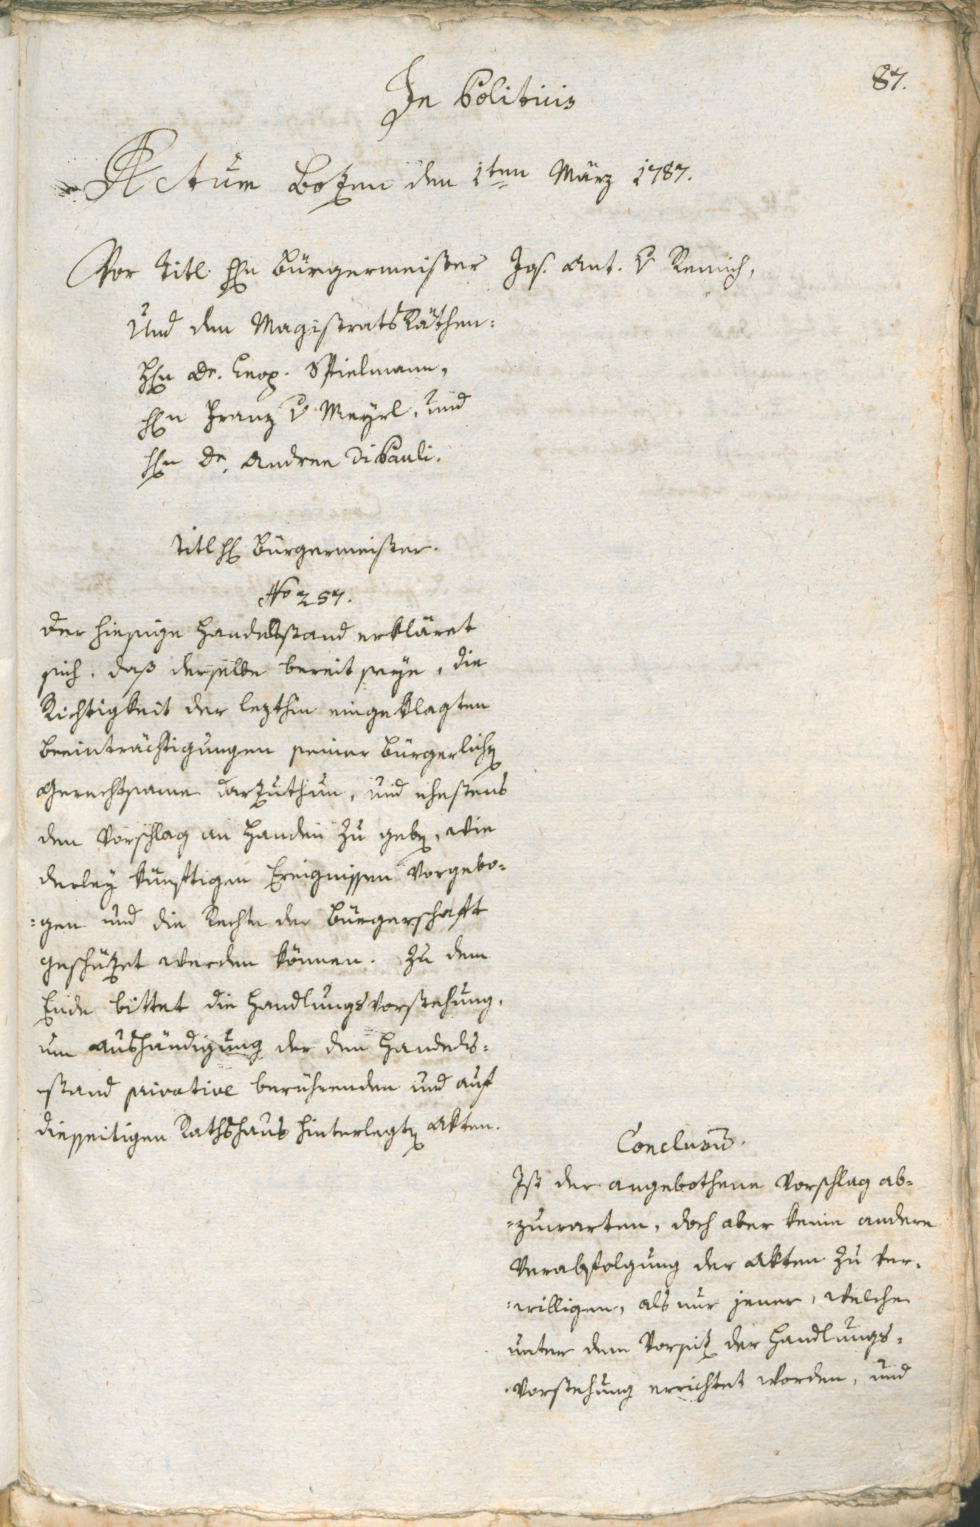 87.
In Politicis
Actum Botzen den 1ten März 1787.
Vor Titl. Hn Bürgermeister Jos. Ant. v Remich,
Und den Magistrats Räthen:
Hn Dr. Leop. Spielmann,
Hn Franz v Meyrl, und
Hn Dr. Andree Di Pauli.
Titl H Bürgermeister.
No 257.
Der hiesige Handelsstand erkläret
sich, daß derselbe bereit seye, die
Richtigkeit der lezthin eingeklagten
Beeinträchtigungen seiner Bürgerlichen
Gerechtsame darzuthun, und ehestens
den Vorschlag an Handen zu geben, wie
derley künftigen Ereignissen Vorgebo-
=gen und die Rechte der Bürgerschafft
geschützet werden können. Zu dem
Ende bittet die Handlungs Vorstehung,
um Aushändigung der den Handels-
stand privative berührenden und auf
diesseitigen Rathshaus hinterlegten Akten.
Conclusum.
Ist der angebothene Vorschlag ab-
=zuwarten, doch aber keine andere
Verabfolgung der Akten zu ver-
=willigen, als nur jener, welche
unter dem Vorsitz der Handlungs-
Vorstehung errichtet worden, und